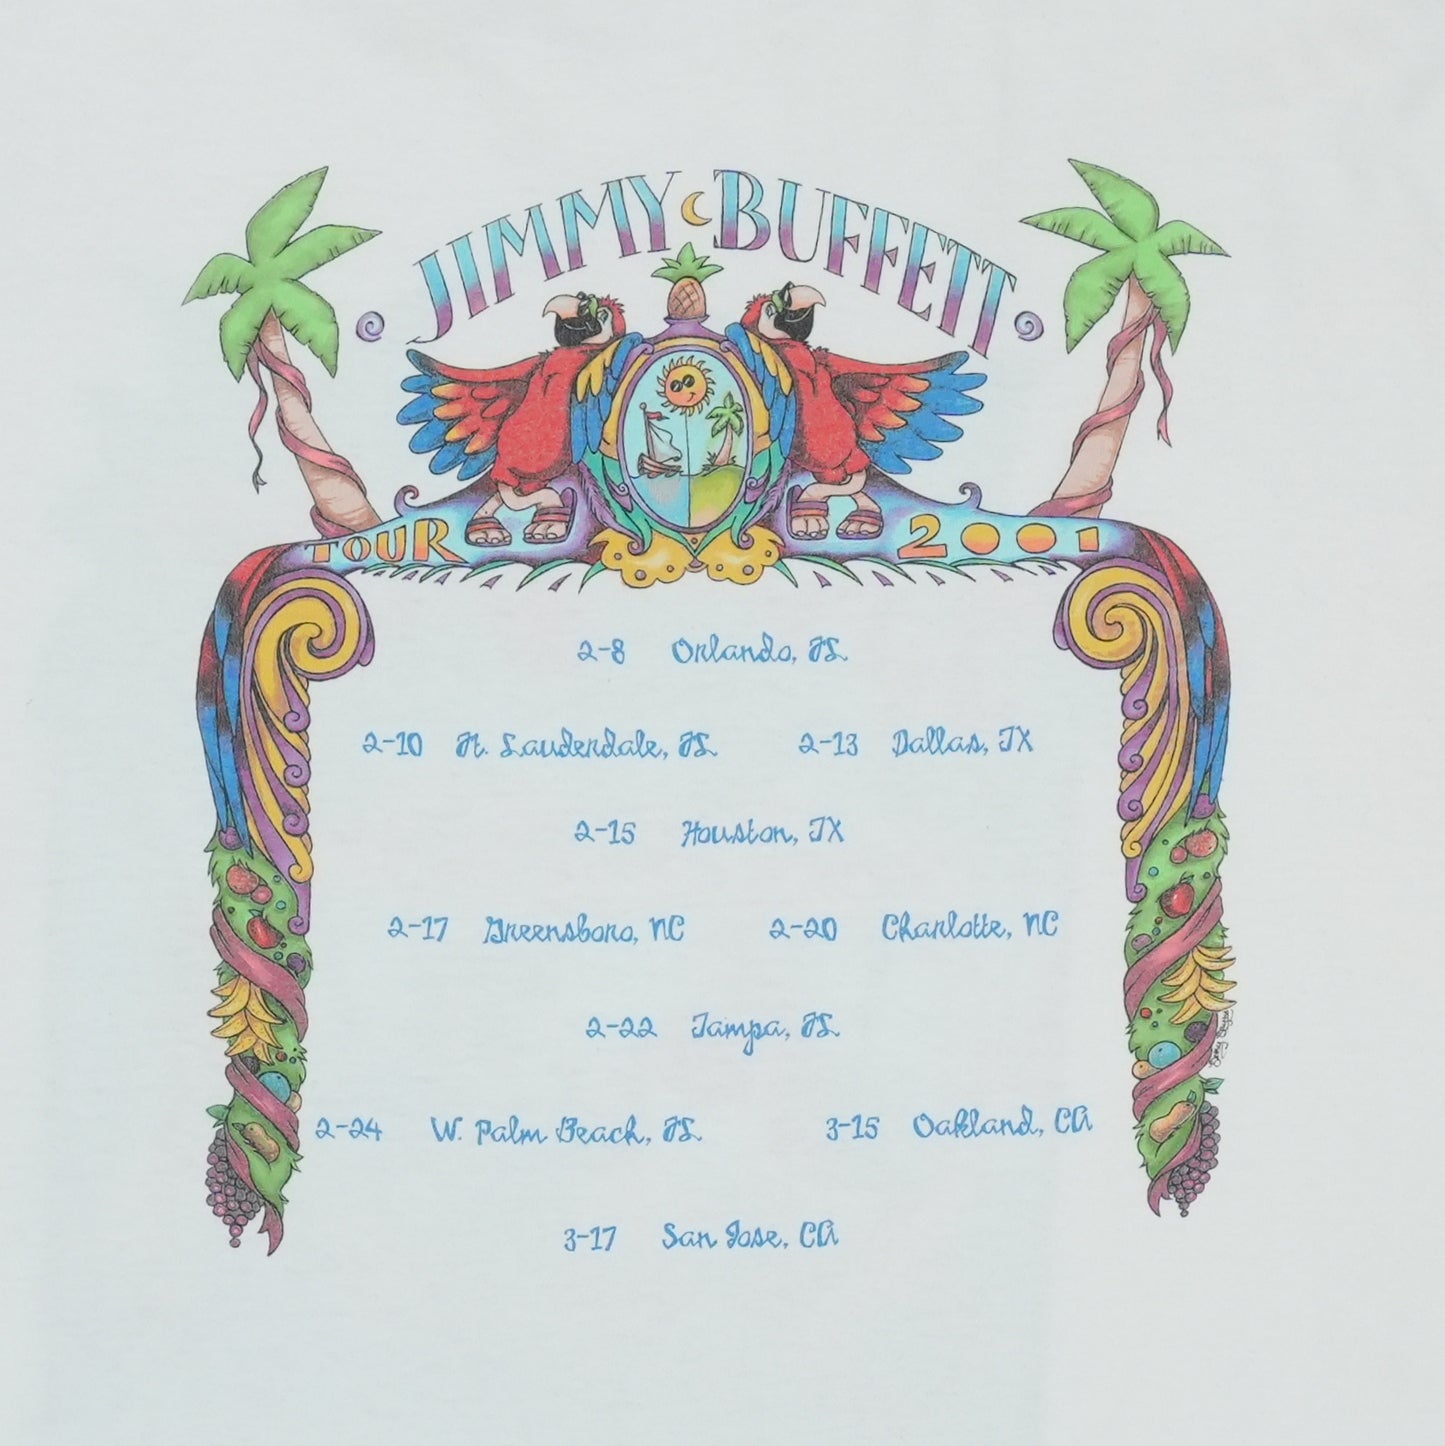 JIMMY BUFFETT
TOUR 2001
2-8 Orlando, FL
2-10 Ft. Lauderdale, FL 2-13 Dallas, TX
2-15 Houston, TX
2-17 Greensboro, NC 2-20 Charlotte, NC
2-22 Tampa, FL
2-24 W. Palm Beach, FL 3-15 Oakland, CA
3-17 San Jose, CA